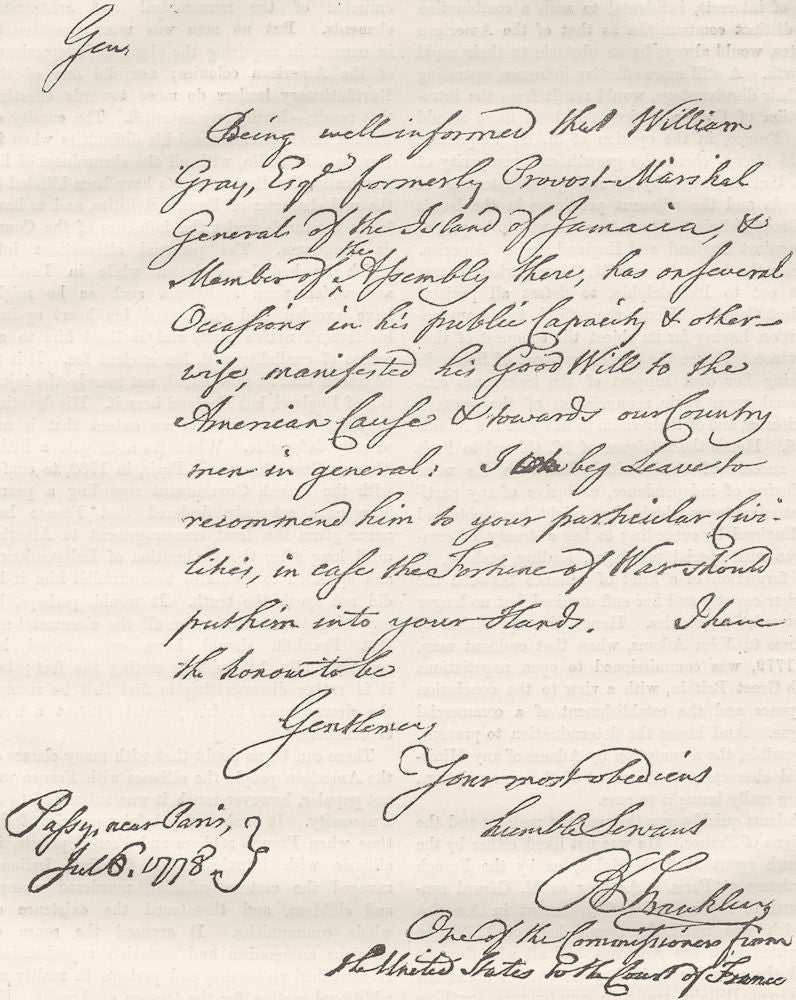 Gen,
Being well informed that William
Gray, Esqr formerly Provost-Marshal
General of the Island of Jamaica, &
Member of the Assembly there, has on several
Occasions in his public Capacity & other-
wise, manifested his Good Will to the
American Cause & towards our Country
men in general: I beg Leave to
recommend him to your particular Civi-
lities, in case the Fortune of War should
put him into your Hands. I have
the honour to be
Gentlemen,
Your most obedient
humble Servant
B Franklin,
One of the Commissioners from
the United States to the Court of France
Passy, near Paris,
Jul 6. 1778.